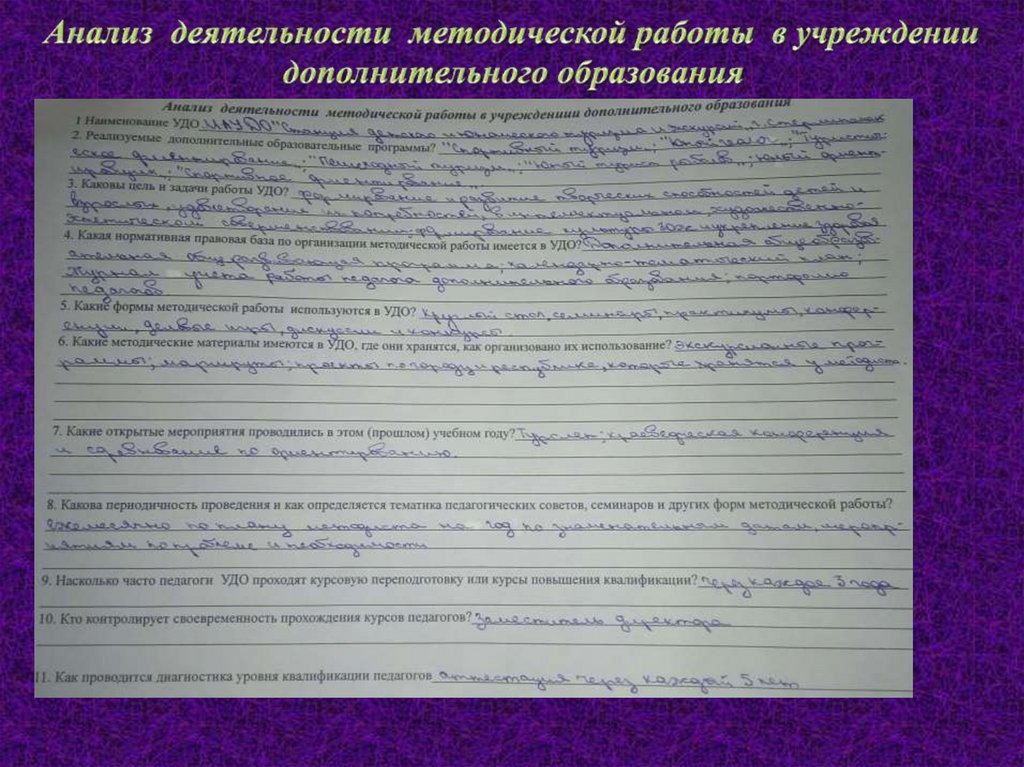 Анализ деятельности методической работы в учреждении
дополнительного образования
Анализ деятельности методической работы в учреждениии дополнительного образования
1 Наименование УДО МАУ ДО "Станция детского и юношеского туризма и экскурсий" г. Стерлитамак
2. Реализуемые дополнительные образовательные программы? "Спортивный туризм"; "Юный эколог"; "Туристы-
еское ориентирование"; "Пешеходный туризм"; "Юный турист"; "юный ориент-
ировщик"; "Спортивное ориентирование".
3. Каковы цель и задачи работы УДО? формирование и развитие творческих способностей детей и
взрослых, удовлетворение их потребностей в интеллектуальном, художественно-
эстетическом совершенствовании, формирование культуры ЗОЖ и укрепление здоровья
4. Какая нормативная правовая база по организации методической работы имеется в УДО? Дополнительная общеобразов-
ательная общеразвивающая программа; календарно-тематический план;
Журнал учета работы педагога дополнительного образования; портфолио
педагогов
5. Какие формы методической работы используются в УДО? Круглый стол, семинары, практикумы, конфер-
енции, деловые игры, дискуссии и конкурсы
6. Какие методические материалы имеются в УДО, где они хранятся, как организовано их использование? Экскурсионные прог-
раммы; маршруты; проекты по городу и республике, которые хранятся у методиста.
7. Какие открытые мероприятия проводились в этом (прошлом) учебном году? Турслет; краеведческая конференция
и соревнования по ориентированию.
8. Какова периодичность проведения и как определяется тематика педагогических советов, семинаров и других форм методической работы?
Ежемесячно по плану методиста на год по знаменательным датам, меропр-
иятиям по проблеме и необходимости
9. Насколько часто педагоги УДО проходят курсовую переподготовку или курсы повышения квалификации? Через каждое 3 года
10. Кто контролирует своевременность прохождения курсов педагогов? Заместитель директора
11. Как проводится диагностика уровня квалификации педагогов аттестация через каждый 5 лет